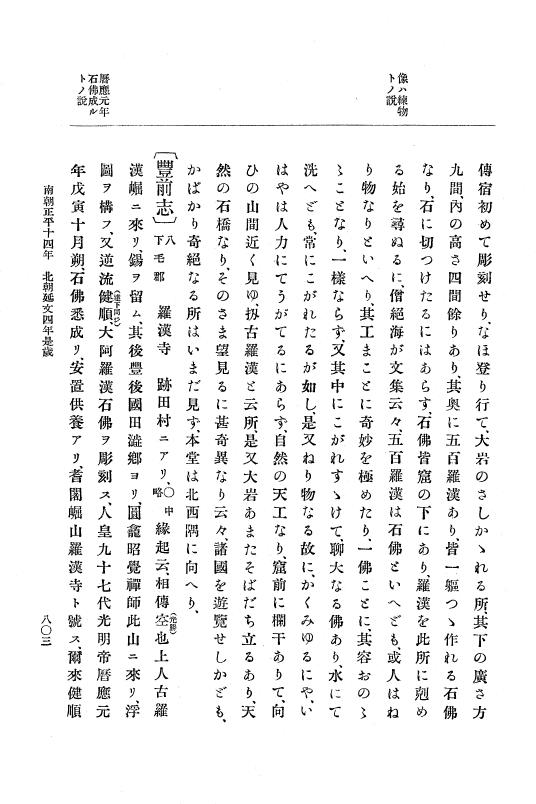 像ハ練物
トノ說
曆應元年
石佛成ル
トノ說
傳宿初めて彫刻せり、なほ登り行て、大岩のさしかゝれる所、其下の廣さ方
九間、內の高さ四間餘りあり、其奧に五百羅漢あり、皆一軀つゝ作れる石佛
なり、石に切つけたるにはあらす、石佛皆窟の下にあり、羅漢を此所に剋め
る始を尋ぬるに、僧絕海が文集云々、五百羅漢は石佛といへども、或人はね
り物なりといへり、其工まことに奇妙を極めたり、一佛ことに、其容おのゝ
ゝことなり、一樣ならす、又其中にこがれすゝけて、聊大なる佛あり、水にて
洗へども、常にこがれたるが如し、是又ねり物なる故に、かくみゆるにや、い
はやは人力にてうがてるにあらす、自然の天工なり、窟前に欄干ありて、向
ひの山間近く見ゆ、扨古羅漢と云所、是又大岩あまたそばだち立るあり、天
然の石橋なり、そのさま望見るに甚奇異なり云々、諸國を遊覽せしかども、
かばかり奇絕なる所はいまだ見ず、本堂は北西隅に向へり、
〔豐前志〕八下毛郡 羅漢寺 跡田村ニアリ、○中略 緣起云、相傳空也(光勝)上人古羅
漢崛ニ來リ、錫ヲ留ム、其後豐後國田澁鄉ヨリ、圓龕昭覺禪師此山ニ來リ、浮
圖ヲ構フ、又逆流健順(建下同ジ)大阿羅漢石佛ヲ彫刻ス、人皇九十七代光明帝曆應元
年戊寅十月朔、石佛悉成リ、安置供養アリ、耆闍崛山羅漢寺ト號ス、爾來健順
南朝正平十四年 北朝延文四年是歲
八〇三